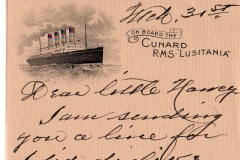 Wed. 31st.
ON BOARD THE
CUNARD
RMS "LUSITANIA"
Dear little
I am sending
you a line for